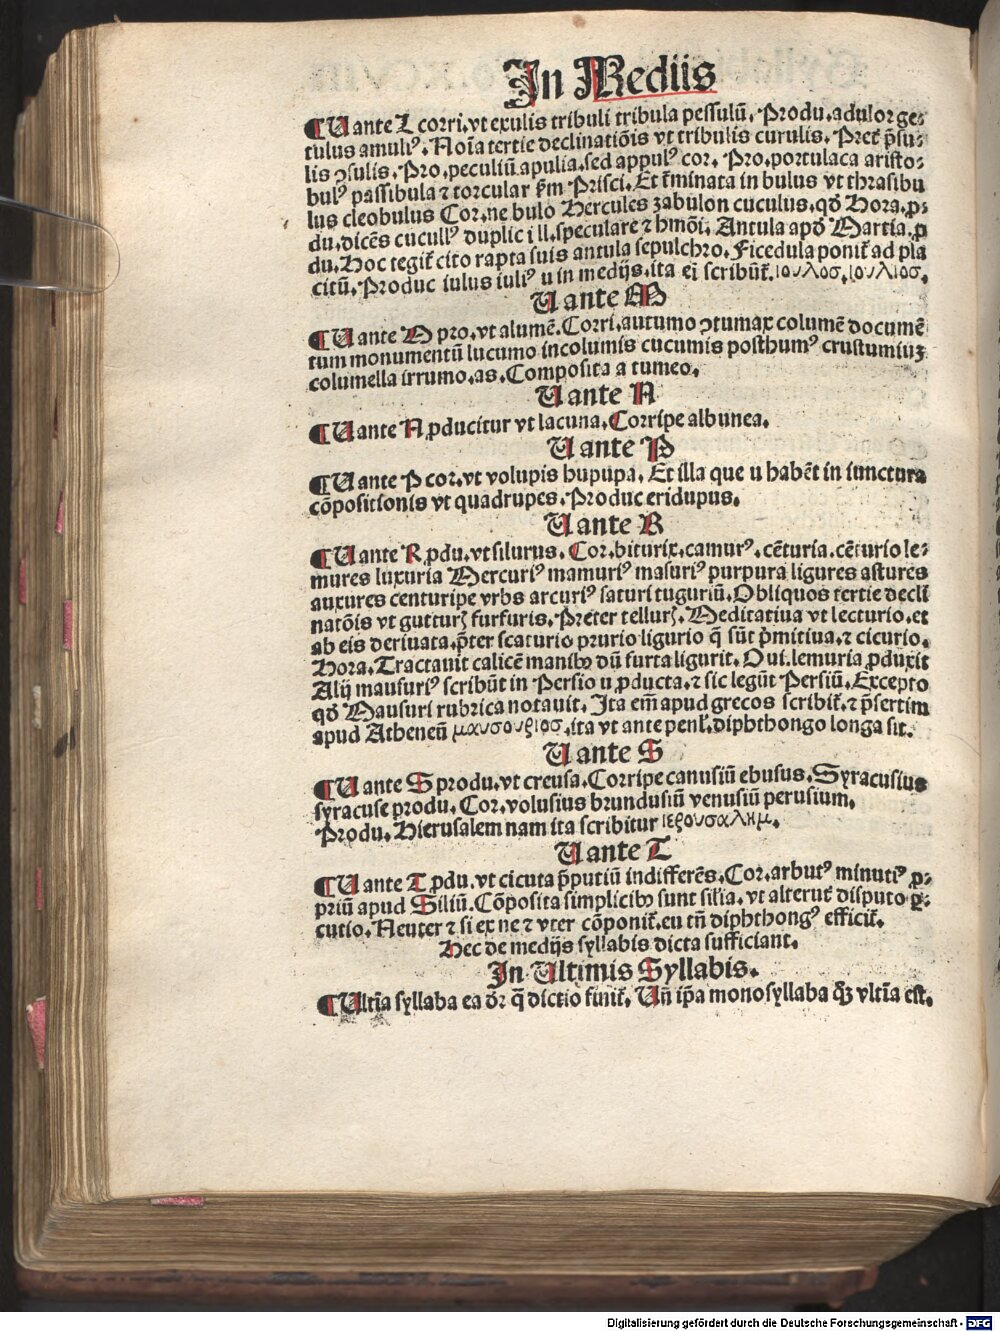 In Mediis
¶ U ante L corri. vt exulis tribuli tribula pessulū. Produ. adulor ge⸗
tulus amulꝰ. Noīa tertie declinatiōis vt tribulis curulis. Pret̄ p̄su⸗
lis ↄsulis. Pro. peculiū apulia. sed appulꝰ cor. Pro. portulaca aristo⸗
bulꝰ passibula ⁊ torcular ẜm Prisci. Et t̄minata in bulus vt thrasibu
lus cleobulus Cor. ne bulo Hercules zabulon cuculus. qđ Hora. ꝓ⸗
du. dicēs cucullꝰ duplici ll. speculare ⁊ hmōi. Antula apđ Martia. ꝓ
du. Hoc tegit̄ cito rapta suis antula sepulchro. Ficedula ponit̄ ad pla
citū. Produc iulus iuliꝰ u in medijs. ita ei scribūt̄. ιουλοσ. ιουλιοσ.
U ante M
¶ U ante M pro. vt alumē. Corri. autumo ↄtumax columē documē
tum monumentū lucumo incolumis cucumis posthumꝰ crustumiuꝫ
columella irrumo. as. Composita a tumeo.
U ante N
¶ U ante N ꝓducitur vt lacuna. Corripe albunea.
U ante P
¶ U ante P cor. vt volupis hupupa. Et illa que u habēt in iunctura
cōpositionis vt quadrupes. Produc eridupus.
U ante R
¶ U ante R ꝓdu. vt silurus. Cor. biturix. camurꝰ. cēturia. cēturio le⸗
mures luxuria Mercuriꝰ mamuriꝰ masuriꝰ purpura ligures astures
auxures centuripe vrbs arcuriꝰ saturi tuguriū. Obliquos tertie decli
natōis vt guttur furfuris. Preter tellur. Meditatiua vt lecturio. et
ab eis deriuata. p̄ter scaturio prurio ligurio q̄ sūt p̄mitiua. ⁊ cicurio.
Hora. Tractauit calicē manibꝰ dū furta ligurit. Oui. lemuria ꝓduxit
Alij mausuriꝰ scribūt in Persio u ꝓducta. ⁊ sic legūt Persiū. Excepto
qđ Mausuri rubrica notauit. Ita em̄ apud grecos scribit̄. ⁊ p̄sertim
apud Atheneū μαυσουριοσ. ita vt ante penl̄. diphthongo longa sit.
U ante S
¶ U ante S produ. vt creusa. Corripe canusiū ebusus. Syracusius
syracuse produ. Cor. volusius brundusiū venusiū perusium.
Produ. Hierusalem nam ita scribitur ιερουσαλημ.
U ante T
¶ U ante T ꝓdu. vt cicuta p̄putiū indifferēs. Cor. arbutꝰ minutiꝰ ꝓ⸗
priū apud Siliū. Cōposita simplicibꝰ sunt silia. vt alterut̄ disputo ꝑ⸗
cutio. Neuter ⁊ si ex ne ⁊ vter cōponit̄. eu tn̄ diphthongꝰ efficit̄.
Hec de medijs syllabis dicta sufficiant.
In Ultimis Syllabis.
¶ Ultīa syllaba ea dr̄ q̄ dictio finit̄. Un̄ ip̄a monosyllaba qꝫ vltīa est.
Digitalisierung gefördert durch die Deutsche Forschungsgemeinschaft - DFG